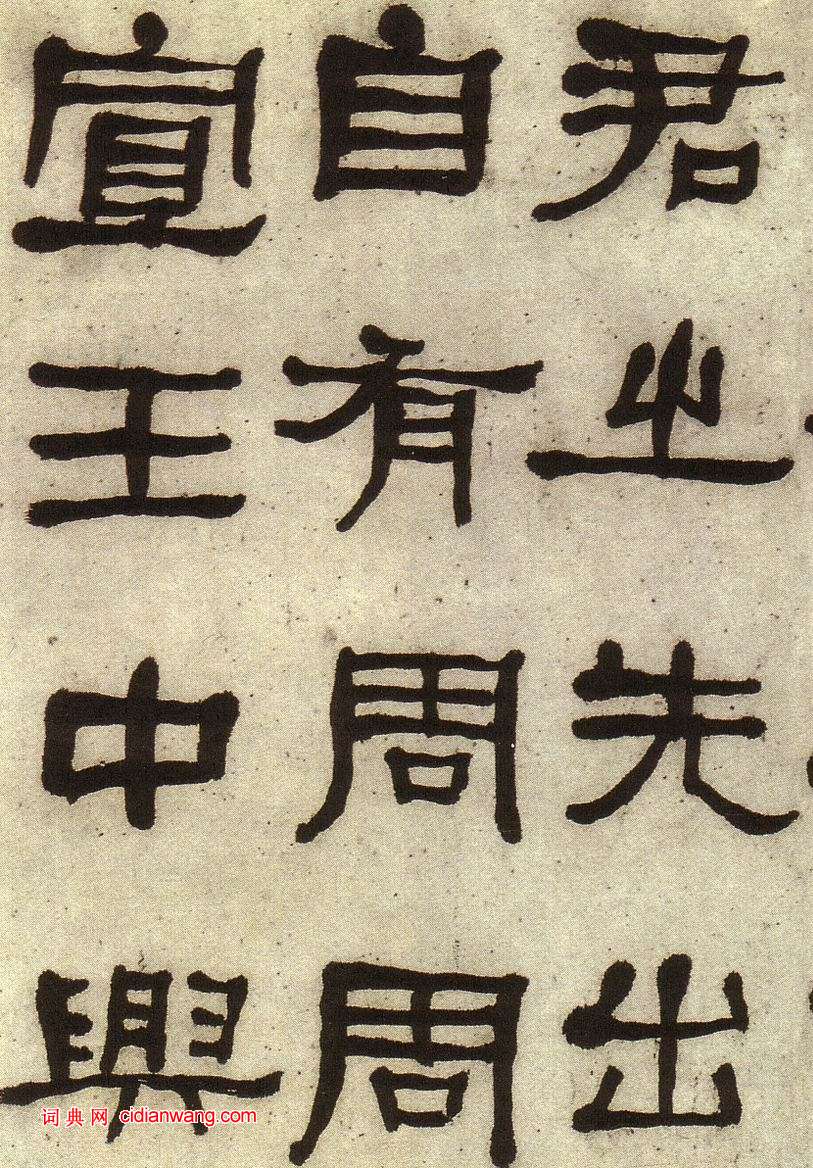 君之先出
自有周周
宣王中興
词典网 cidianwang.com